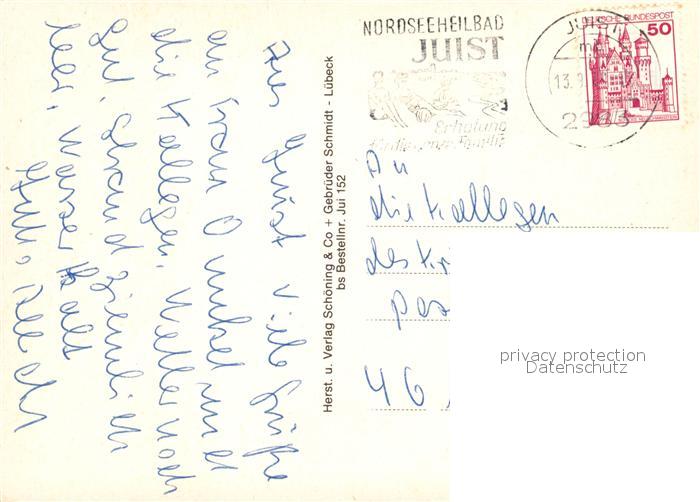 Aus Juist viele Grüße
an Frau O und
die Kollegen. Wetter noch
gut, Strand ziemlich
leer, Wasser kalt
Herst. u. Verlag Schöning & Co + Gebrüder Schmidt - Lübeck
bs Bestellnr. Jui 152
NORDSEEHEILBAD
JUIST
Erholung
für die ganze Familie
JUIST
13.
2983
DEUTSCHE BUNDESPOST
50
An
die Kollegen
des
Pos
46
privacy protection
Datenschutz